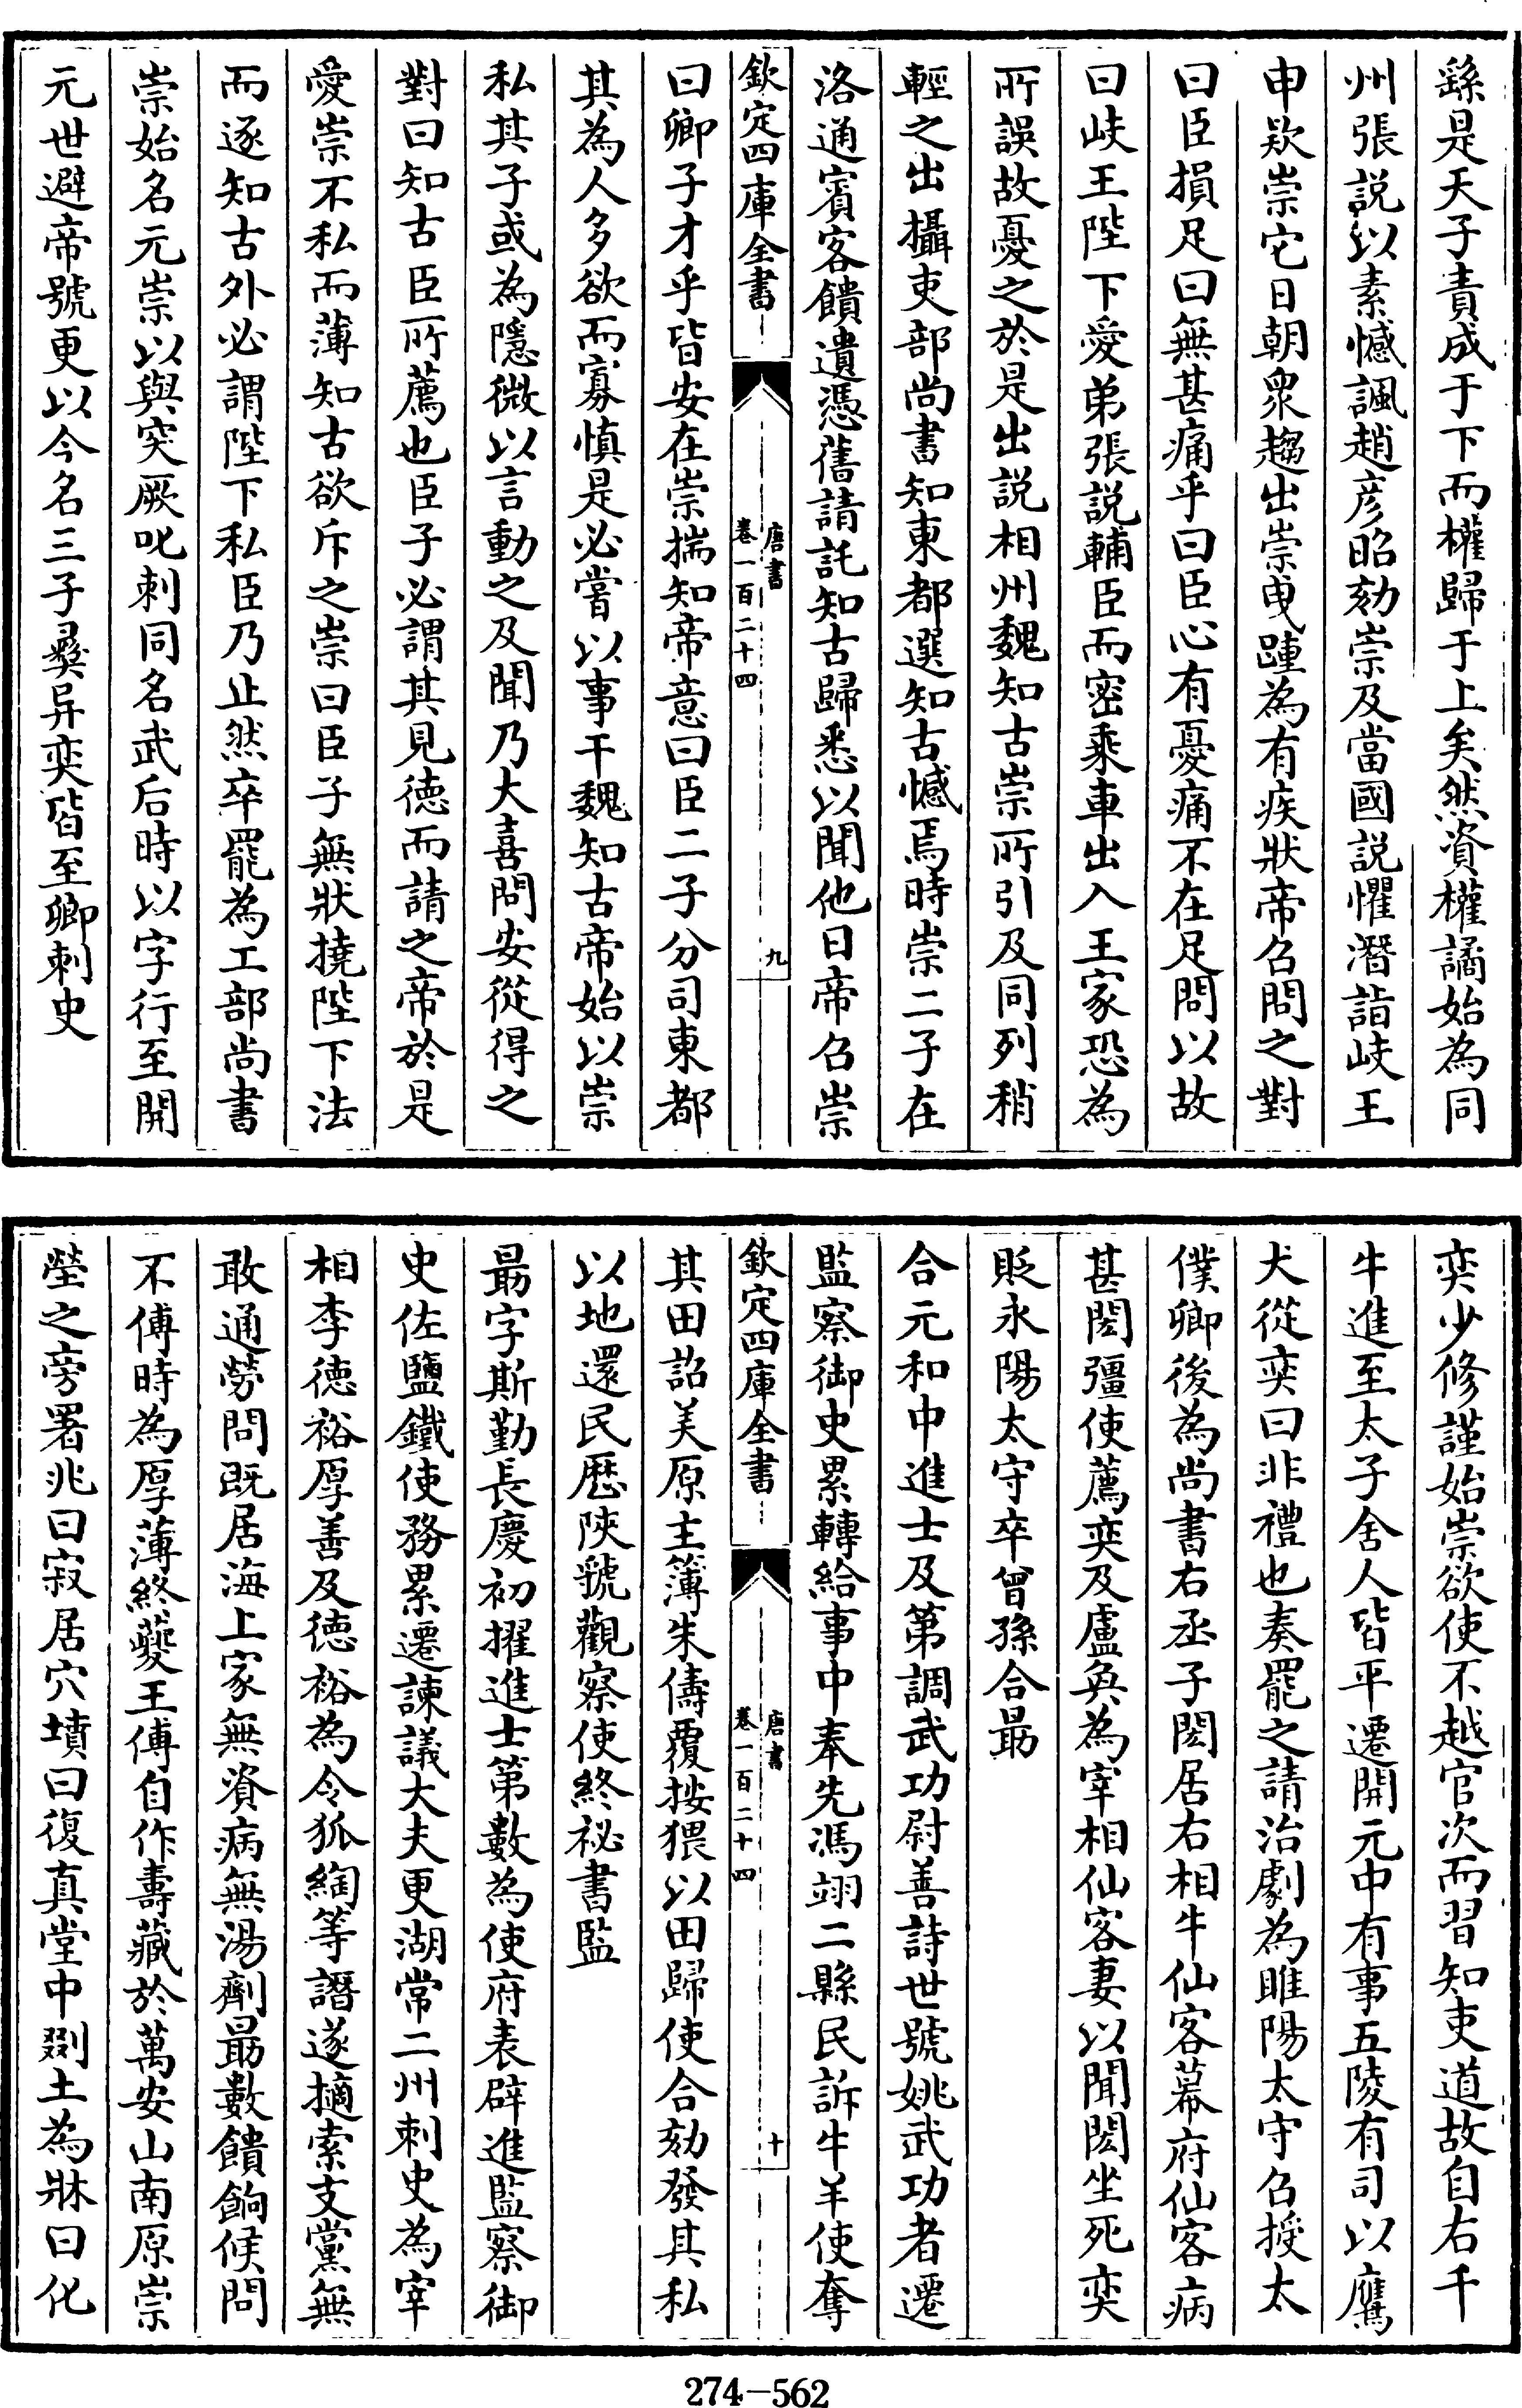 繇是天子責成于下而權歸于上矣然資權譎始為同
州張説以素憾諷趙彦昭劾崇及當國説懼潛詣岐王
申欵崇它日朝衆趨出崇曳踵為有疾狀帝召問之對
曰臣損足曰無甚痛乎曰臣心有憂痛不在足問以故
曰岐王陛下愛弟張説輔臣而密乘車出入王家恐為
所誤故憂之於是出説相州魏知古崇所引及同列稍
輕之出攝吏部尚書知東都選知古憾焉時崇二子在
洛通賓客饋遺憑舊請託知古歸悉以聞他日帝召崇
欽定四庫全書
唐書
卷一百二十四
九
曰卿子才乎皆安在崇揣知帝意曰臣二子分司東都
其為人多欲而寡慎是必嘗以事干魏知古帝始以崇
私其子或為隱微以言動之及聞乃大喜問安從得之
對曰知古臣所薦也臣子必謂其見徳而請之帝於是
愛崇不私而薄知古欲斥之崇曰臣子無狀撓陛下法
而逐知古外必謂陛下私臣乃止然卒罷為工部尚書
崇始名元崇以與突厥叱刺同名武后時以字行至開
元世避帝號更以今名三子彞异奕皆至卿刺史
奕少修謹始崇欲使不越官次而習知吏道故自右千
牛進至太子舍人皆平遷開元中有事五陵有司以鷹
犬從奕曰非禮也奏罷之請治劇為睢陽太守召授太
僕卿後為尚書右丞子閎居右相牛仙客幕府仙客病
甚閎彊使薦奕及盧奐為宰相仙客妻以聞閎坐死奕
貶永陽太守卒曾孫合勗
合元和中進士及第調武功尉善詩世號姚武功者遷
監察御史累轉給事中奉先馮翊二縣民訴牛羊使奪
欽定四庫全書
唐書
卷一百二十四
十
其田詔美原主簿朱儔覆按猥以田歸使合劾發其私
以地還民厯陜虢觀察使終祕書監
勗字斯勤長慶初擢進士第數為使府表辟進監察御
史佐鹽鐵使務累遷諫議大夫更湖常二州刺史為宰
相李徳裕厚善及徳裕為令狐綯等譖逐擿索支黨無
敢通勞問既居海上家無資病無湯劑勗數饋餉候問
不傅時為厚薄終夔王傅自作壽藏於萬安山南原崇
塋之旁署兆曰寂居穴墳曰復真堂中剟土為牀曰化
274-562